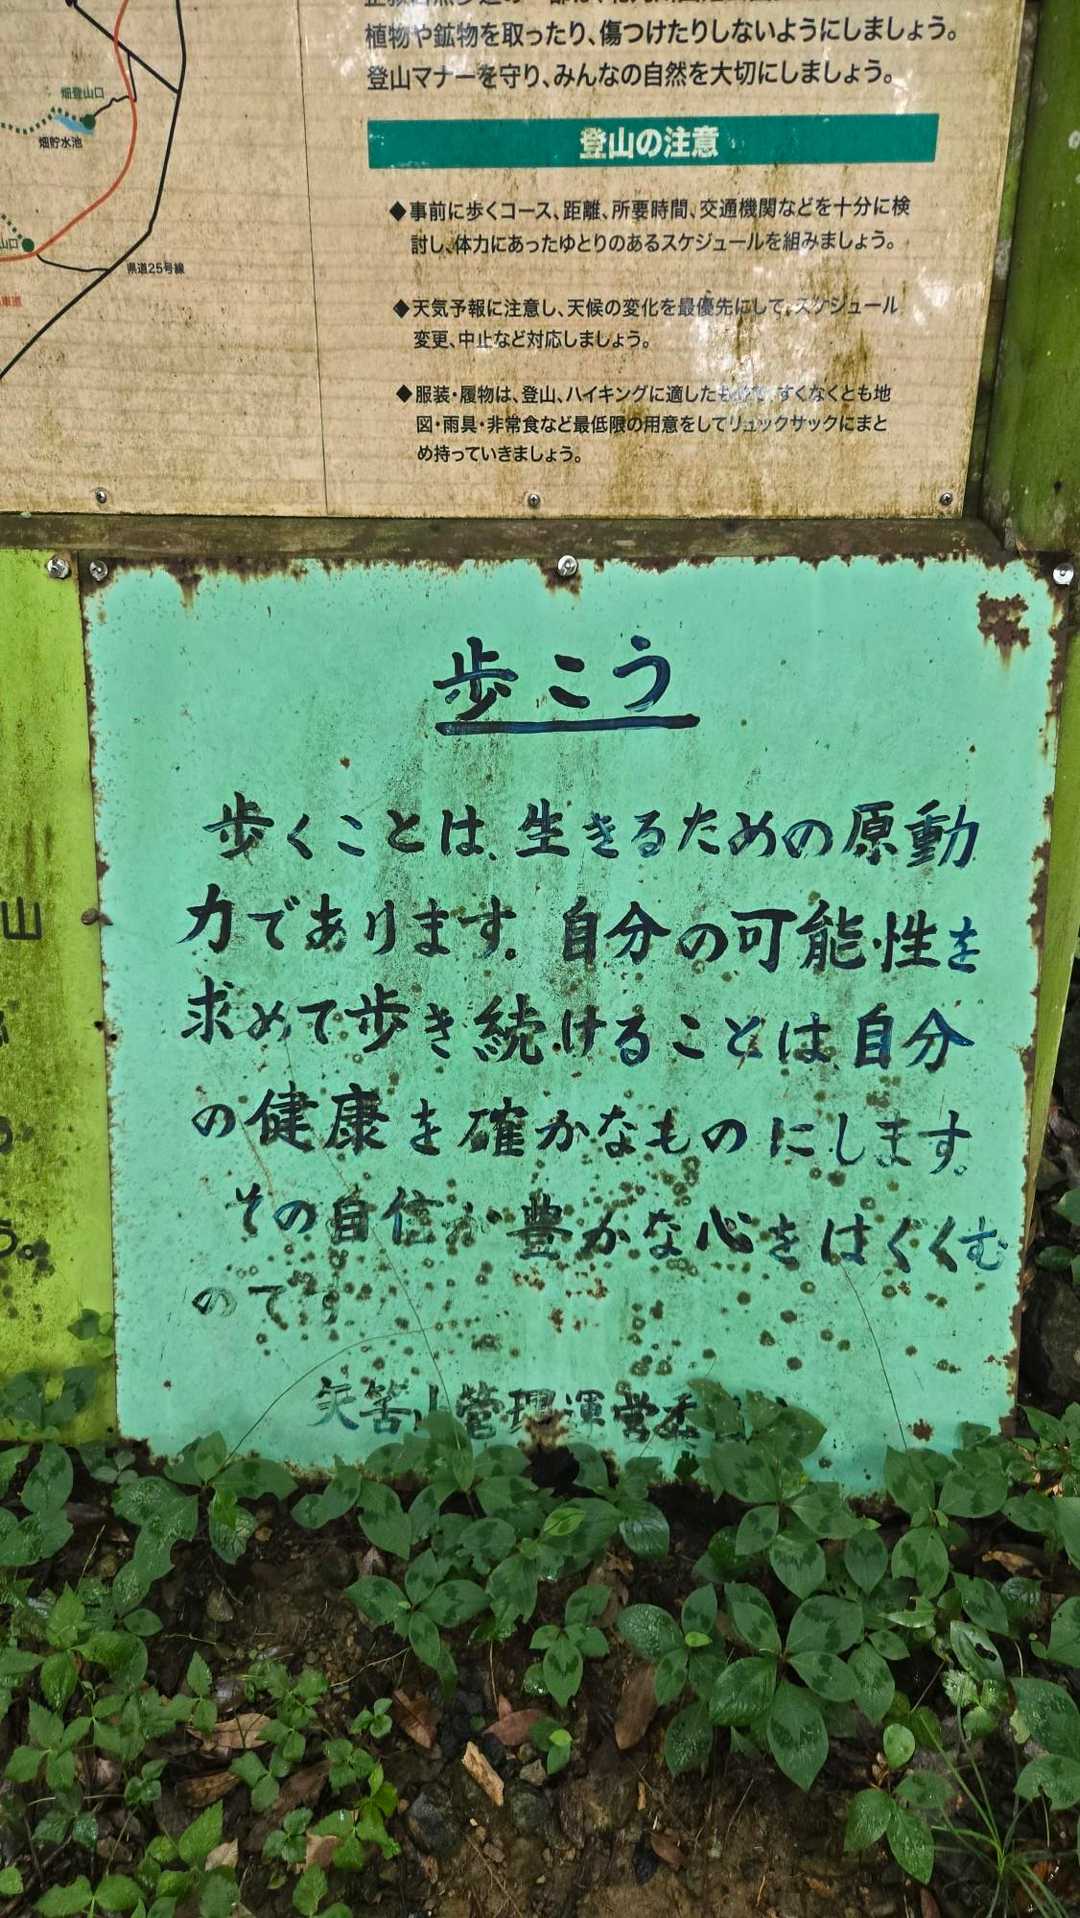 植物や鉱物を取ったり、傷つけたりしないようにしましょう。
登山マナーを守り、みんなの自然を大切にしましょう。
畑登山口
畑貯水池
山口
県道25号線
車道
登山の注意
◆事前に歩くコース、距離、所要時間、交通機関などを十分に検
討し、体力にあったゆとりのあるスケジュールを組みましょう。
◆天気予報に注意し、天候の変化を最優先にして、スケジュール
変更、中止など対応しましょう。
◆服装・履物は、登山、ハイキングに適したもので、すくなくとも地
図・雨具・非常食など最低限の用意をしてリュックサックにまと
め持っていきましょう。
山
う。
歩こう
歩くことは、生きるための原動
力であります。自分の可能性を
求めて歩き続けることは、自分
の健康を確かなものにします。
その自信が豊かな心をはぐくむ
のです
矢筈山管理運営委